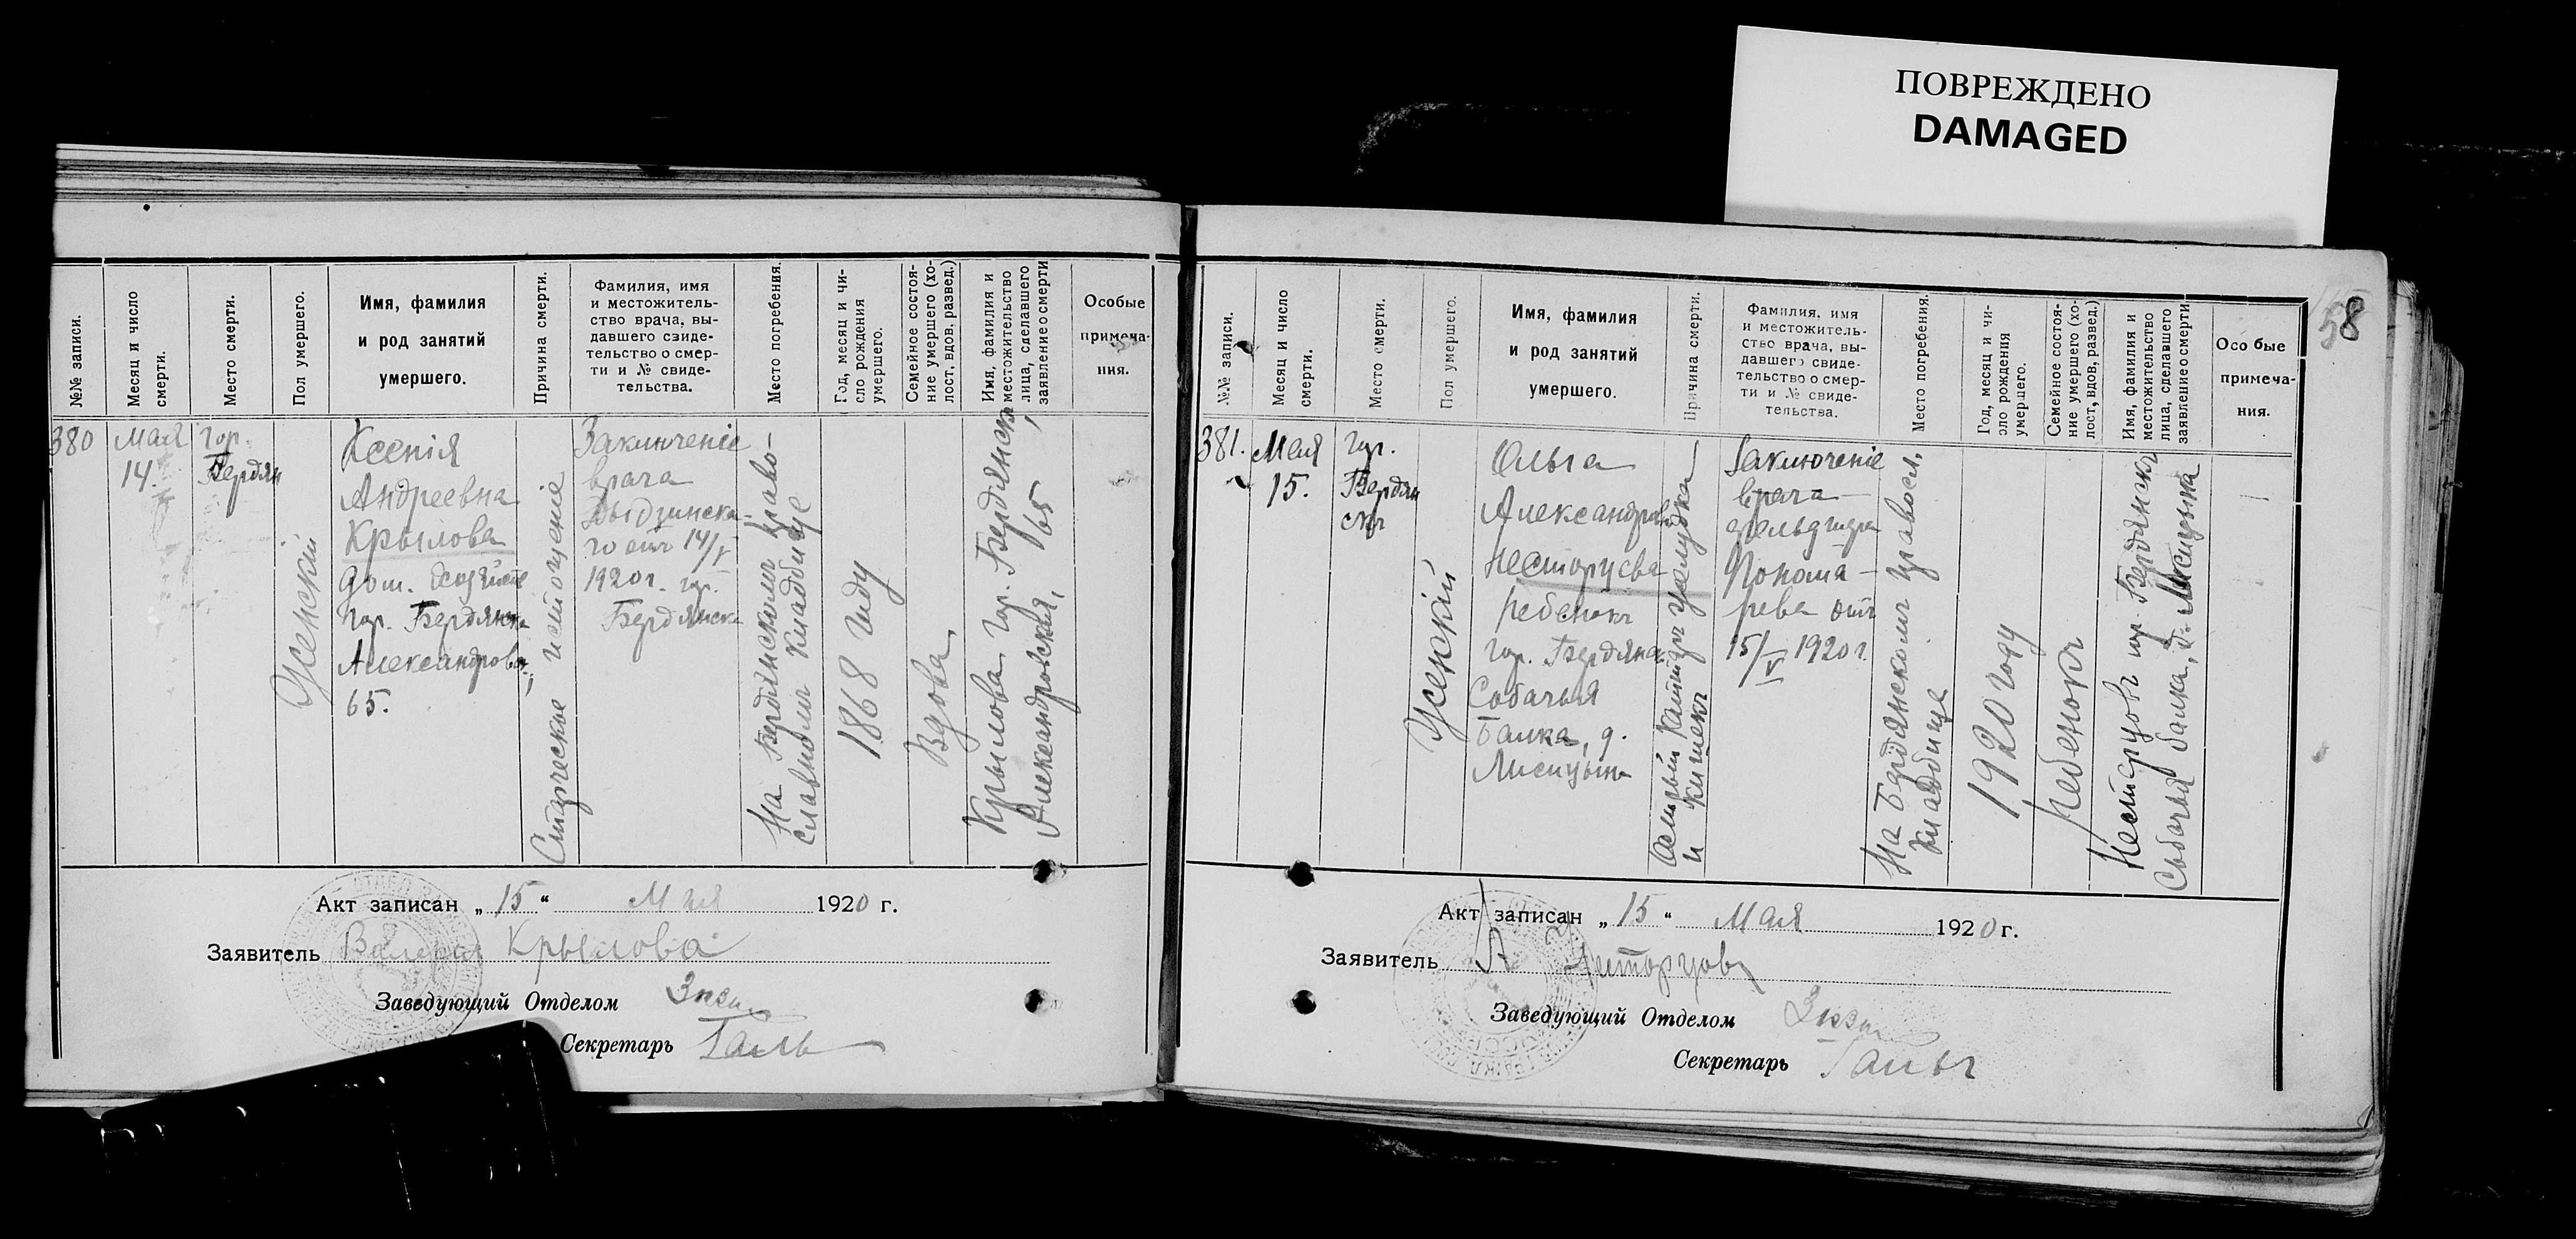 ПОВРЕЖДЕНО
DAMAGED
58
№№ записи.
Месяц и число
смерти.
Место смерти.
Пол умершего.
Имя, фамилия
и род занятий
умершего.
Причина смерти.
Фамилия, имя
и местожитель-
ство врача, вы-
давшего свиде-
тельство о смер-
ти и № свиде-
тельства.
Место погребения.
Год, месяц и чи-
сло рождения
умершего.
Семейное состоя-
ние умершего (хо-
лост, вдов, развед.)
Имя, фамилия и
местожительство
лица, сделавшего
заявление о смерти
Особые
примеча-
ния.
380
Мая
14.
гор.
Бердян
Женский
Ксенія
Андреевна
Крылова
дом.
гор. Бердянска
Александровск.,
65.
Старческое истощеніе
Заключеніе
врача
го отъ 14/V
1920 г. гор.
Бердянска
На Бердянскомъ право-
славномъ кладбище
1868 году
Вдова
Крылова, гор. Бердянскъ,
Александровская, 65
Акт записан „ 15 “ Мая 1920 г.
Заявитель Валерия Крылова
Заведующий Отделом
Секретарь Галь
№№ записи.
Месяц и число
смерти.
Место смерти.
Пол умершего.
Имя, фамилия
и род занятий
умершего.
Причина смерти.
Фамилия, имя
и местожитель-
ство врача, вы-
давшего свиде-
тельство о смер-
ти и № свиде-
тельства.
Место погребения.
Год, месяц и чи-
сло рождения
умершего.
Семейное состоя-
ние умершего (хо-
лост, вдов, развед.)
Имя, фамилия и
местожительство
лица, сделавшего
заявление о смерти
Особые
примеча-
ния.
381.
Мая
15.
гор.
Бердян
скъ
Женский
Ольга
Александровна
Несторуева
ребенокъ
гор. Бердянск
Собачья
Балка, д.
Лисицына
Острый катарръ желудка
и кишекъ
Заключеніе
врача
фельдшера
Понома-
рева отъ
15/V 1920 г.
На Бердянскомъ правосл.
кладбище
1920 году
ребенокъ
Несторуовъ гор. Бердянскъ
Собачья балка, д. Лисицына
Акт записан „ 15 “ Мая 1920 г.
Заявитель А Несторуовъ
Заведующий Отделом
Секретарь Галь